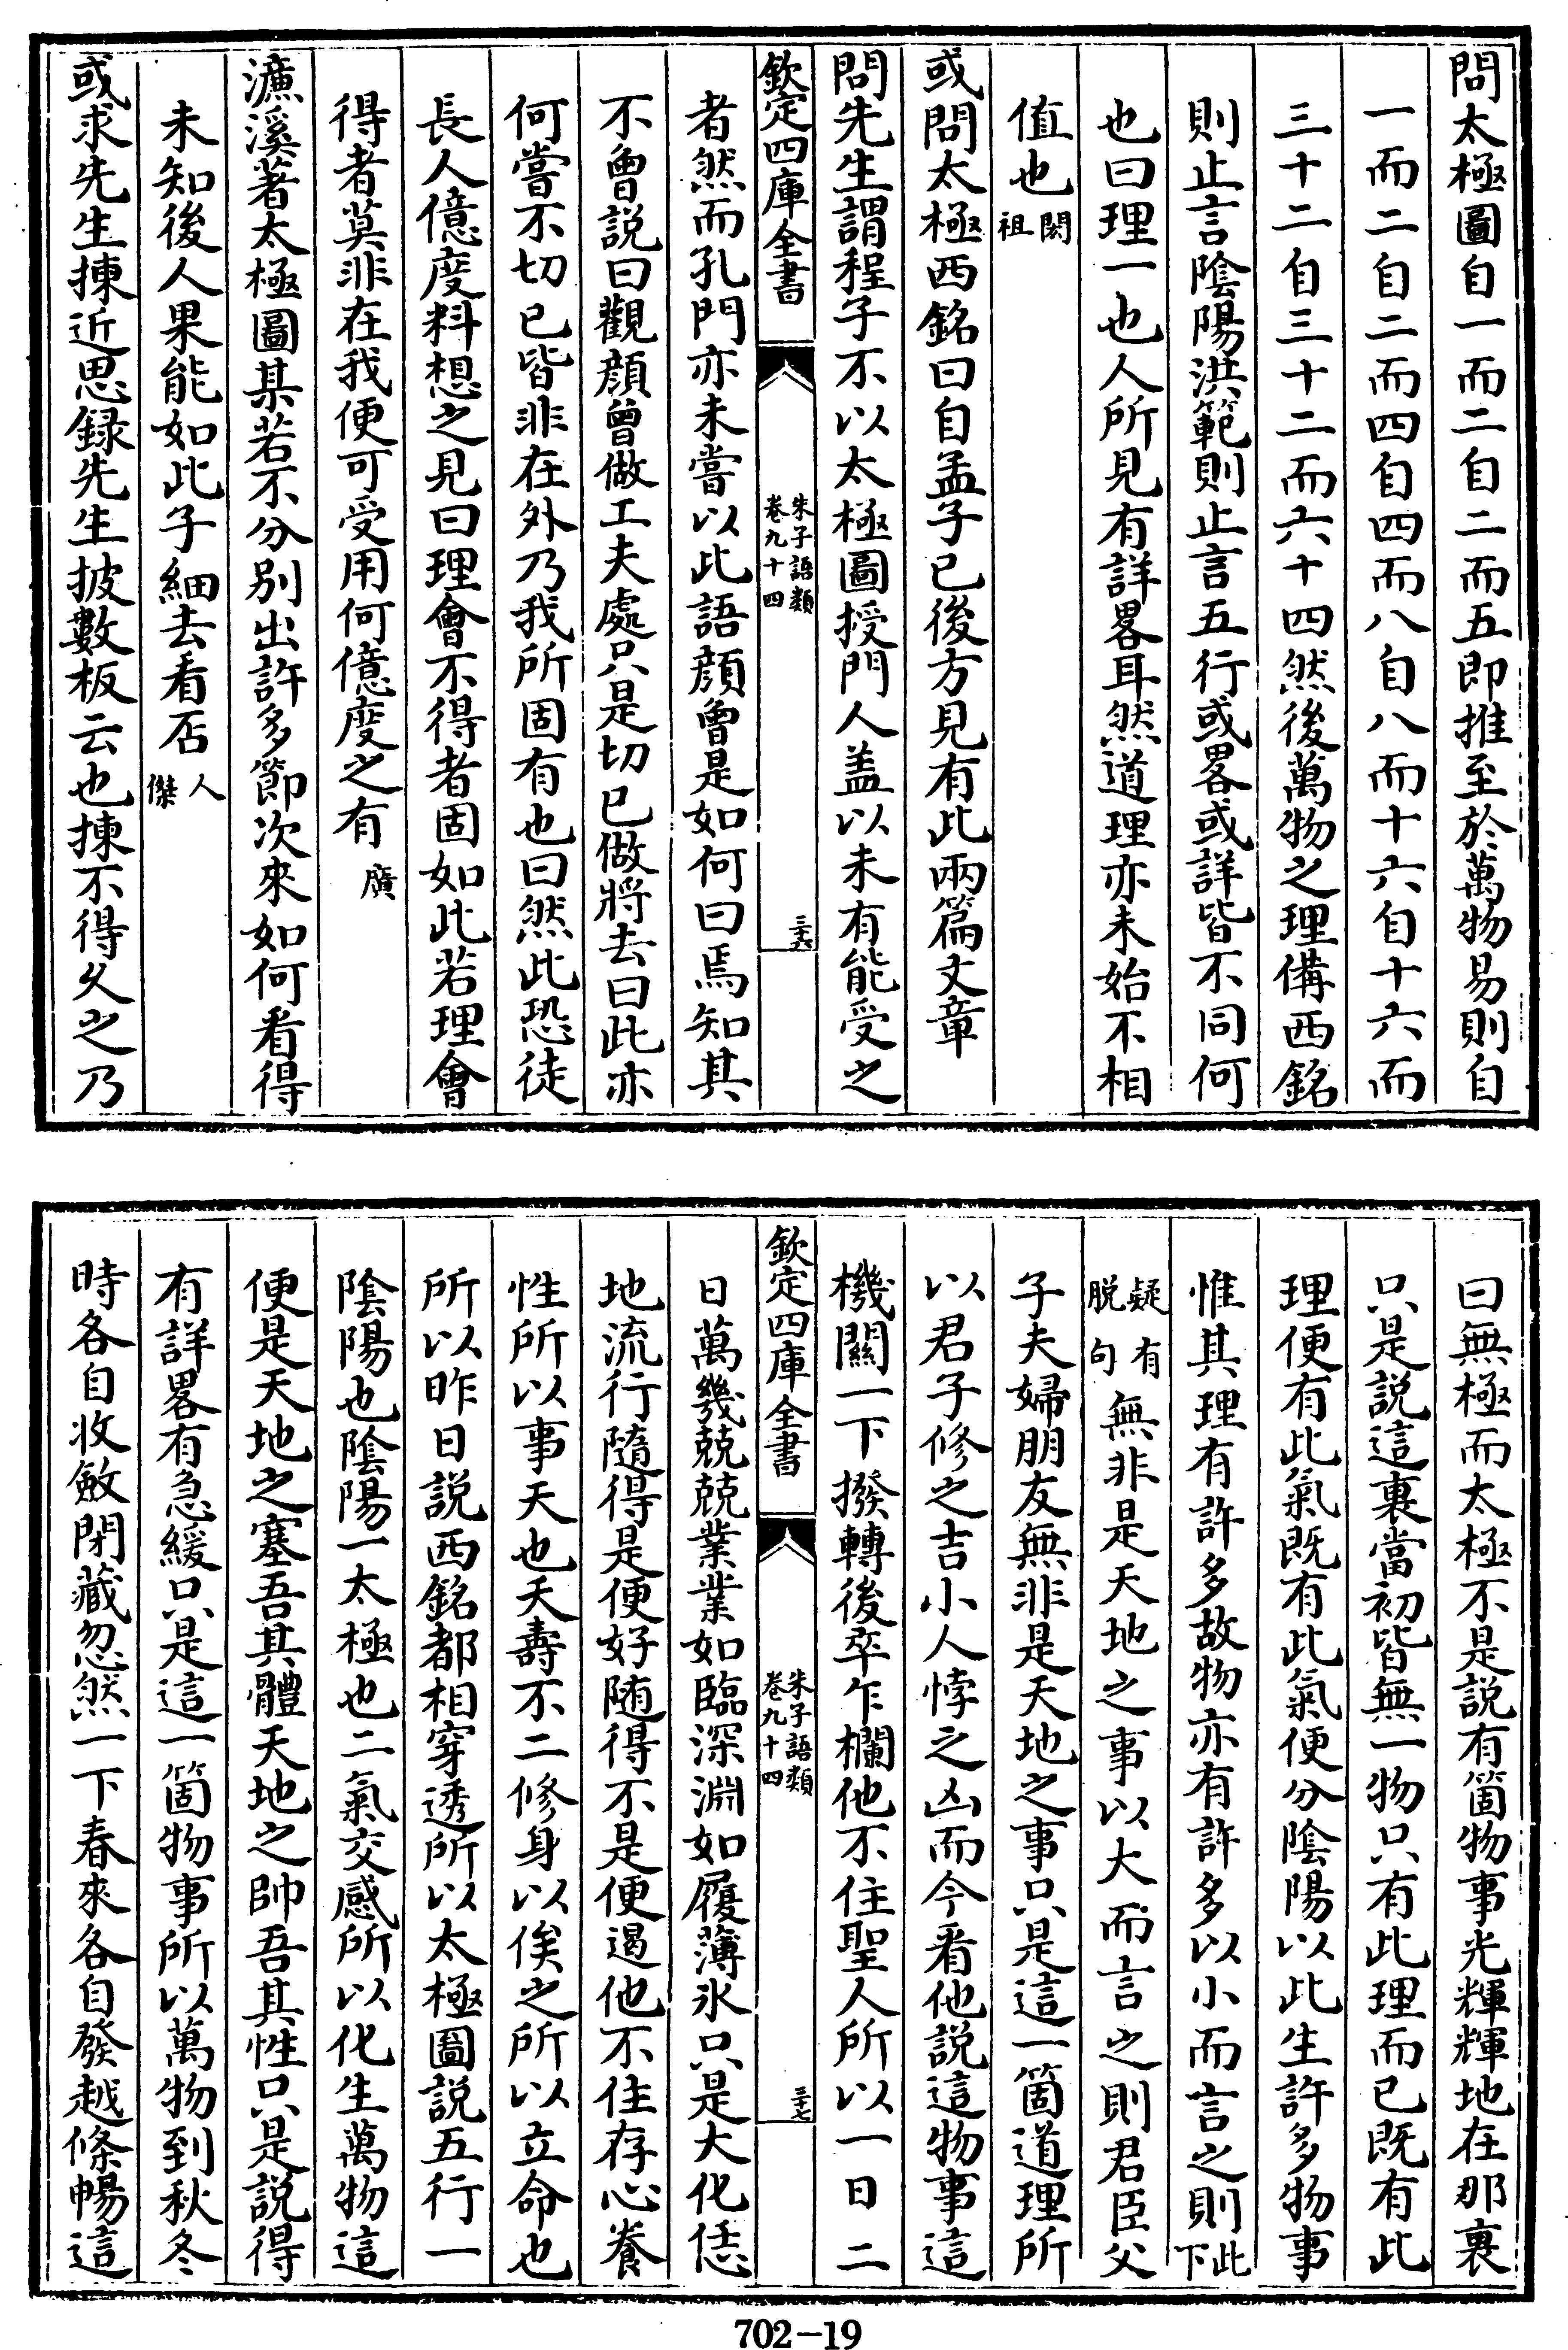 問太極圖自一而二自二而五即推至於萬物易則自
一而二自二而四自四而八自八而十六自十六而
三十二自三十二而六十四然後萬物之理備西銘
則止言陰陽洪範則止言五行或畧或詳皆不同何
也曰理一也人所見有詳畧耳然道理亦未始不相
值也閎祖
或問太極西銘曰自孟子已後方見有此兩篇文章
問先生謂程子不以太極圖授門人盖以未有能受之
欽定四庫全書
朱子語類
卷九十四
三十六
者然而孔門亦未嘗以此語顔曾是如何曰焉知其
不曾説曰觀顔曾做工夫處只是切已做將去曰此亦
何嘗不切已皆非在外乃我所固有也曰然此恐徒
長人億度料想之見曰理會不得者固如此若理會
得者莫非在我便可受用何億度之有廣
濂溪著太極圖某若不分别出許多節次來如何看得
未知後人果能如此子細去看否人傑
或求先生揀近思録先生披數板云也揀不得久之乃
曰無極而太極不是説有箇物事光輝輝地在那裏
只是説這裏當初皆無一物只有此理而已既有此
理便有此氣既有此氣便分陰陽以此生許多物事
惟其理有許多故物亦有許多以小而言之則此下
疑有脱句無非是天地之事以大而言之則君臣父
子夫婦朋友無非是天地之事只是這一箇道理所
以君子修之吉小人悖之凶而今看他説這物事這
機關一下撥轉後卒乍欄他不住聖人所以一日二
欽定四庫全書
朱子語類
卷九十四
三十七
日萬幾兢兢業業如臨深淵如履薄氷只是大化恁
地流行隨得是便好随得不是便遏他不住存心養
性所以事天也夭壽不二修身以俟之所以立命也
所以昨日説西銘都相穿透所以太極圖説五行一
陰陽也陰陽一太極也二氣交感所以化生萬物這
便是天地之塞吾其體天地之帥吾其性只是説得
有詳畧有急緩只是這一箇物事所以萬物到秋冬
時各自收斂閉藏忽然一下春來各自發越條暢這
702-19